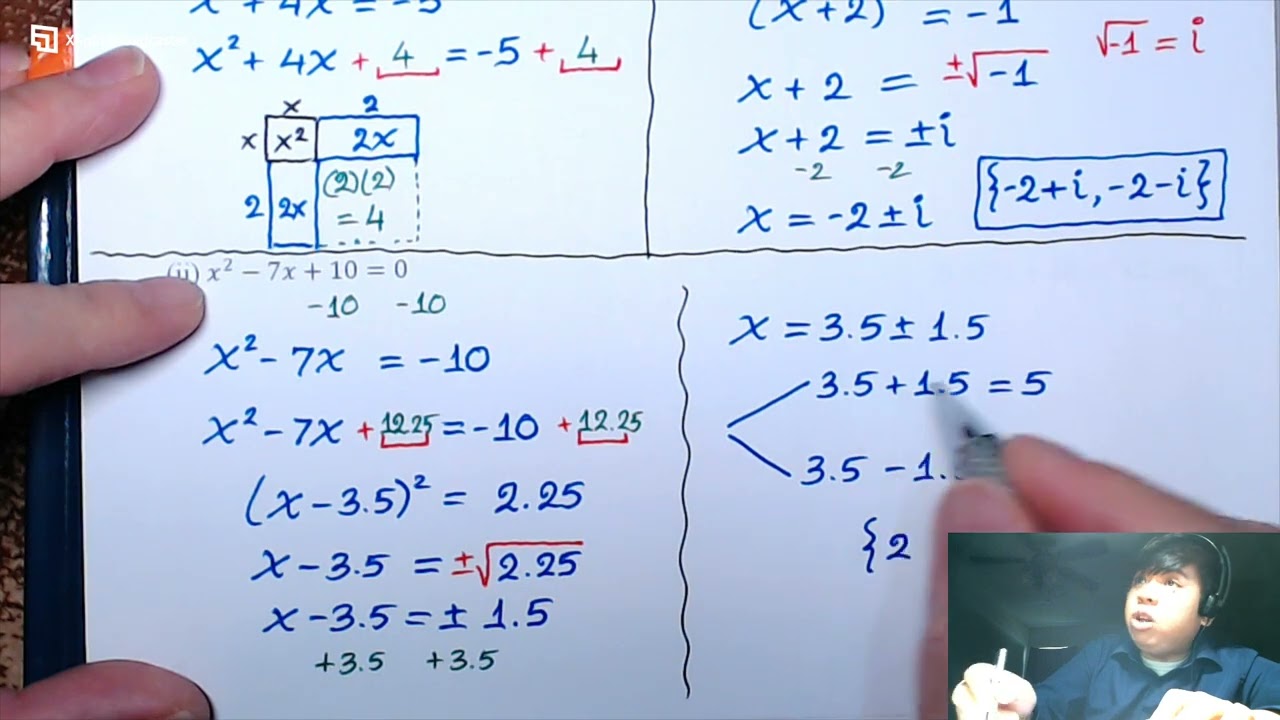 x² + 4x = -5
x² + 4x + 4 = -5 + 4
x 2
x x² 2x
2 2x (2)(2)
= 4
(x+2) = -1
√-1 = i
x + 2 = ±√-1
x + 2 = ±i
-2 -2
x = -2 ± i {-2+i, -2-i}
(ii) x² − 7x + 10 = 0
-10 -10
x² - 7x = -10
x² - 7x + 12.25 = -10 + 12.25
(x - 3.5)² = 2.25
x - 3.5 = ±√2.25
x - 3.5 = ± 1.5
+3.5 +3.5
x = 3.5 ± 1.5
3.5 + 1.5 = 5
3.5 - 1.
{2